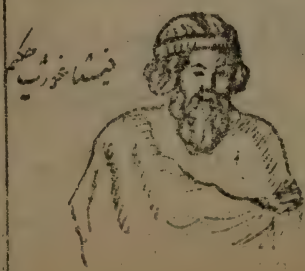 فیثاغورث حکیم